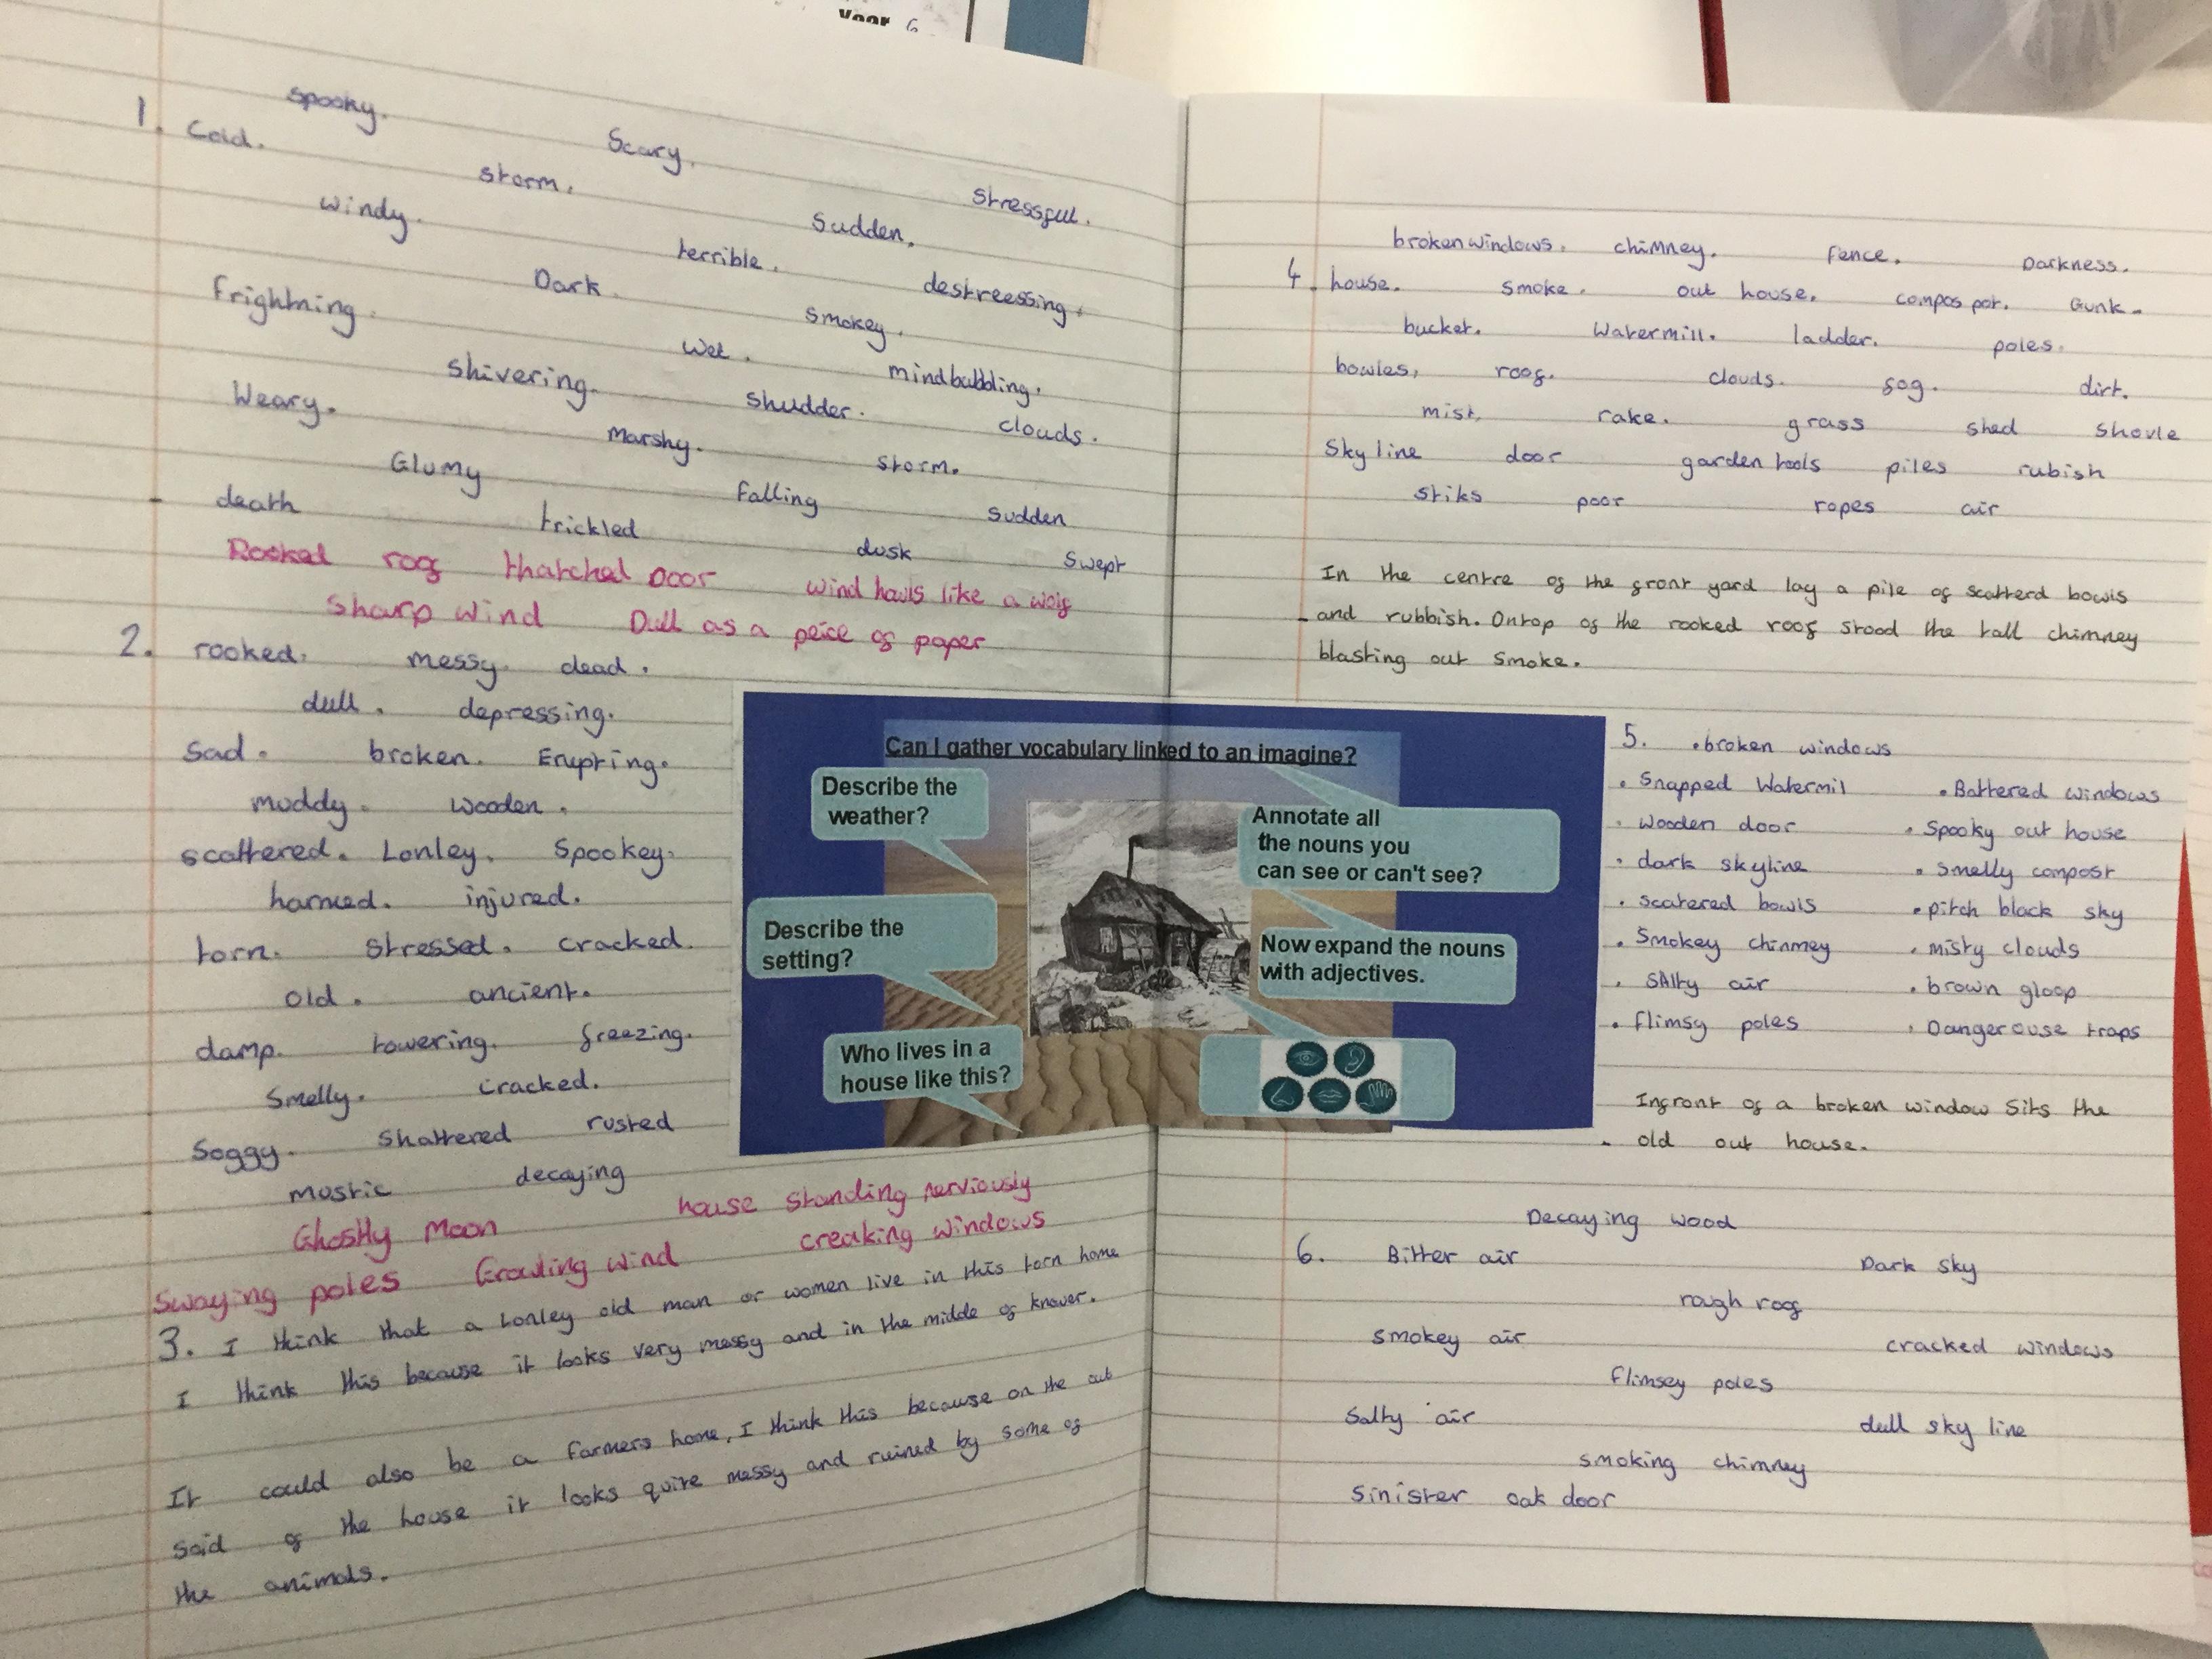 Year 6
spooky.
1. Cold. Scary.
storm. stressful.
windy. Sudden.
terrible.
Dark. destreessing.
frightning. smokey.
wet. mindbubbling.
shivering. shudder.
Weary. clouds.
marshy. storm.
Glumy falling sudden
death trickled dusk swept
Rooked roof thatched Door wind howls like a wolf
Sharp wind Dull as a peice of paper
2. rooked. messy. dead.
dull. depressing.
sad. broken. Erupting.
muddy. wooden.
scattered. Lonley. Spookey.
harmed. injured.
torn. stressed. cracked.
old. ancient.
damp. towering. freezing.
Smelly. cracked.
Soggy. shattered rusted
mostic decaying
Ghostly Moon house standing nerviously
Swaying poles Growling wind creaking windows
3. I think that a Lonley old man or women live in this torn home
I think this because it looks very messy and in the middle of knower.
It could also be a farmers home, I think this because on the out
said of the house it looks quite messy and ruined by some of
the animals.
Can I gather vocabulary linked to an imagine?
Describe the
weather?
Annotate all
the nouns you
can see or can't see?
Describe the
setting?
Now expand the nouns
with adjectives.
Who lives in a
house like this?
broken windows. chimney. fence. Darkness.
4. house. smoke. out house. compos pot. Gunk.
bucket. Watermill. ladder. poles.
bowles, roof. clouds. fog. dirt.
mist, rake. grass shed shovle
Sky line door garden tools piles rubish
stiks poor ropes air
In the centre of the front yard lay a pile of scatterd bowls
and rubbish. Ontop of the rooked roof stood the tall chimney
blasting out smoke.
5. • broken windows
• Snapped Watermil • Battered windows
• Wooden door • Spooky out house
• dark skyline • smelly compost
• scatered bowls • pitch black sky
• Smokey chinmey • misty clouds
• SAlty air • brown gloop
• flimsy poles • Dangerouse traps
Infront of a broken window sits the
old out house.
Decaying wood
6. Bitter air Dark sky
rough roof
smokey air cracked windows
flimsey poles
Salty air dull sky line
smoking chimney
Sinister oak door